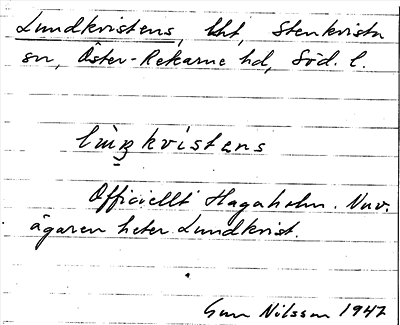 Lundkvistens, tht, Stenkvista
sn, Öster-Rekarne hd, Söd. l.
Officiellt Hagaholm. Nuv.
ägaren heter Lundkvist.
Gun Nilsson 1947